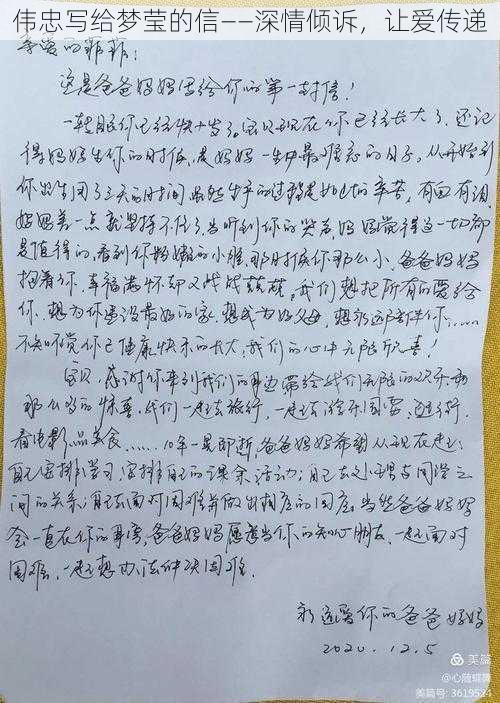 伟忠写给梦莹的信——深情倾诉，让爱传递
亲爱的菲菲：
这是爸爸妈妈写给你的第一封信！
一转眼你已经快十岁了。宝贝现在你已经长大了，还记
得妈妈生你的时候，是妈妈一生中最难忘的日子，从开始到
你出生用了三天的时间，虽然生产的过程是如此的辛苦，有血有泪，
妈妈差一点就坚持不住了，当听到你的哭声，妈妈觉得这一切都
是值得的，看到你粉嫩的小脸，那时候你那么小，爸爸妈妈
抱着你，幸福满怀却又战战兢兢。我们想把所有的爱给
你，想为你建设最好的家，想成为好父母，想永远都伴你……
不知不觉你已健康快乐的长大，我们的心中无限欣喜！
宝贝，感谢你来到我们的身边带给我们无限的欢乐和
那么多的惊喜，我们一起去旅行，一起去游乐园耍、
看电影、品美食……10年一晃即逝，爸爸妈妈希望从现在起：
自己安排学习，安排自己的课余活动；自己去处理与同学之
间的关系；自己去面对困难并做出相应的回应。当然爸爸妈妈
会一直在你的身旁，爸爸妈妈愿意当你的知心朋友，一起面对
困难，一起想办法解决困难。
永远爱你的爸爸妈妈
2020.12.5
美篇
@心随蝶舞
美篇号: 3619524